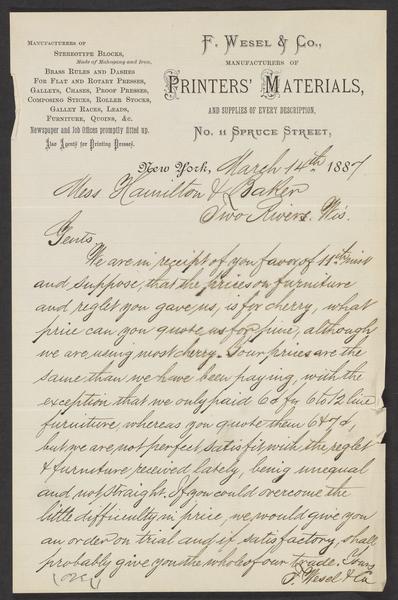 MANUFACTURERS OF
STEREOTYPE BLOCKS,
Made of Mahogany and Iron,
BRASS RULES AND DASHES
FOR FLAT AND ROTARY PRESSES,
GALLEYS, CHASES, PROOF PRESSES,
COMPOSING STICKS, ROLLER STOCKS,
GALLEY RACKS, LEADS,
FURNITURE, QUOINS, &c.
Newspaper and Job Offices promptly fitted up.
Also Agents for Printing Presses.
F. WESEL & CO.,
MANUFACTURERS OF
PRINTERS' MATERIALS,
AND SUPPLIES OF EVERY DESCRIPTION,
No. 11 SPRUCE STREET,
New York, March 14th 1887
Mess Hamilton & Baker
Two Rivers. Wis.
Gents
We are in receipt of you favor of 11th inst
and suppose, that the prices on furniture
and reglet you gave us, is for cherry, what
price can you quote us for pine, although
we are using most cherry. Your prices are the
same than we have been paying, with the
exception that we only paid 6¢ for 6 to 12 line
furniture, whereas you quote them 6 & 7¢,
but we are not perfect satisfit with the reglet
& furniture received lately, being unequal
and not straight. If you could overcome the
little difficulty in price, we would give you
an order on trial and if satisfactory, shall
probably give you the whole of our trade. Yours
F. Wesel & Co